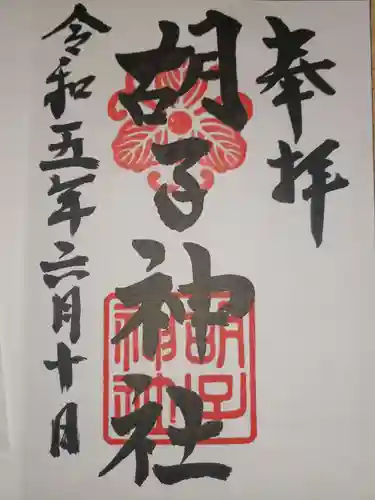 奉拝
胡子神社
胡子神社
令和五年六月十日